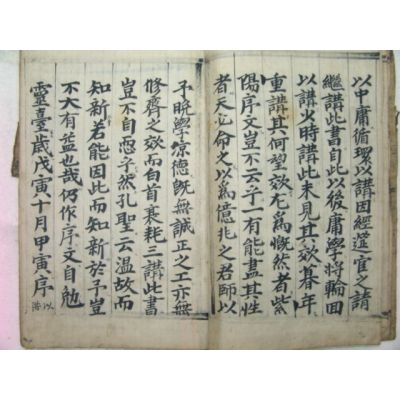 以中庸循環以講因經筵官之請
繼講此書自此以後庸學將輪回
以講少時講此未見其效暮年
重講其何望效尤爲慨然者紫
陽序文豈不云乎一有能盡其性
者天必命之以爲億兆之君師以
予晚學涼德旣無誠正之工亦無
修齊之效而白首衰耗三講此書
豈不自恧乎然孔聖云溫故而
知新若能因此而知新於予豈
不大有益也哉仍作序文自勉
靈臺歲戊寅十月甲寅序